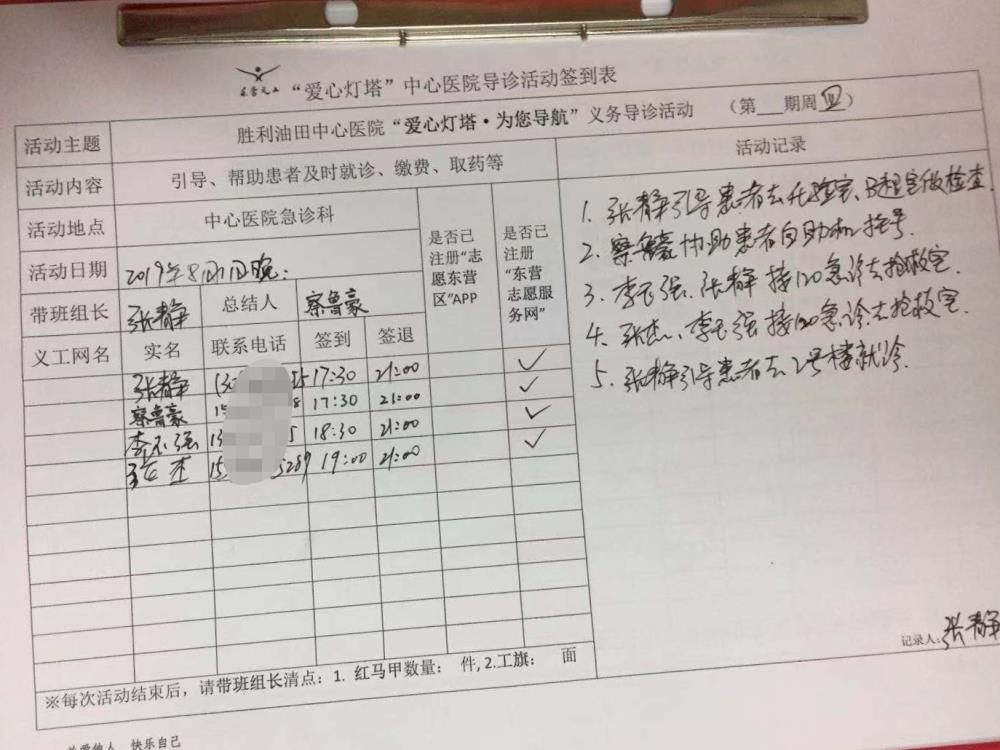 东营义工 “爱心灯塔”中心医院导诊活动签到表
活动主题 胜利油田中心医院“爱心灯塔·为您导航”义务导诊活动 （第 期周四）
活动内容 引导、帮助患者及时就诊、缴费、取药等 活动记录
活动地点 中心医院急诊科 是否已注册“志愿东营区”APP 是否已注册“东营志愿服务网”
活动日期 2019年8月 日晚.
带班组长 张静 总结人 蔡鲁豪
义工网名 实名 联系电话 签到 签退
张静 17:30 21:00 ✓
蔡鲁豪 17:30 21:00 ✓
李 强 18:30 21:00 ✓
张杰 19:00 21:00 ✓
1. 张静引导患者去化验室、B超室做检查.
2. 蔡鲁豪协助患者自助机挂号.
3. 李 强、张静接120急诊去抢救室.
4. 张杰、李 强接120急诊去抢救室.
5. 张静引导患者去2号楼就诊.
记录人:张静
※每次活动结束后，请带班组长清点：1. 红马甲数量： 件, 2.工旗： 面
关爱他人 快乐自己